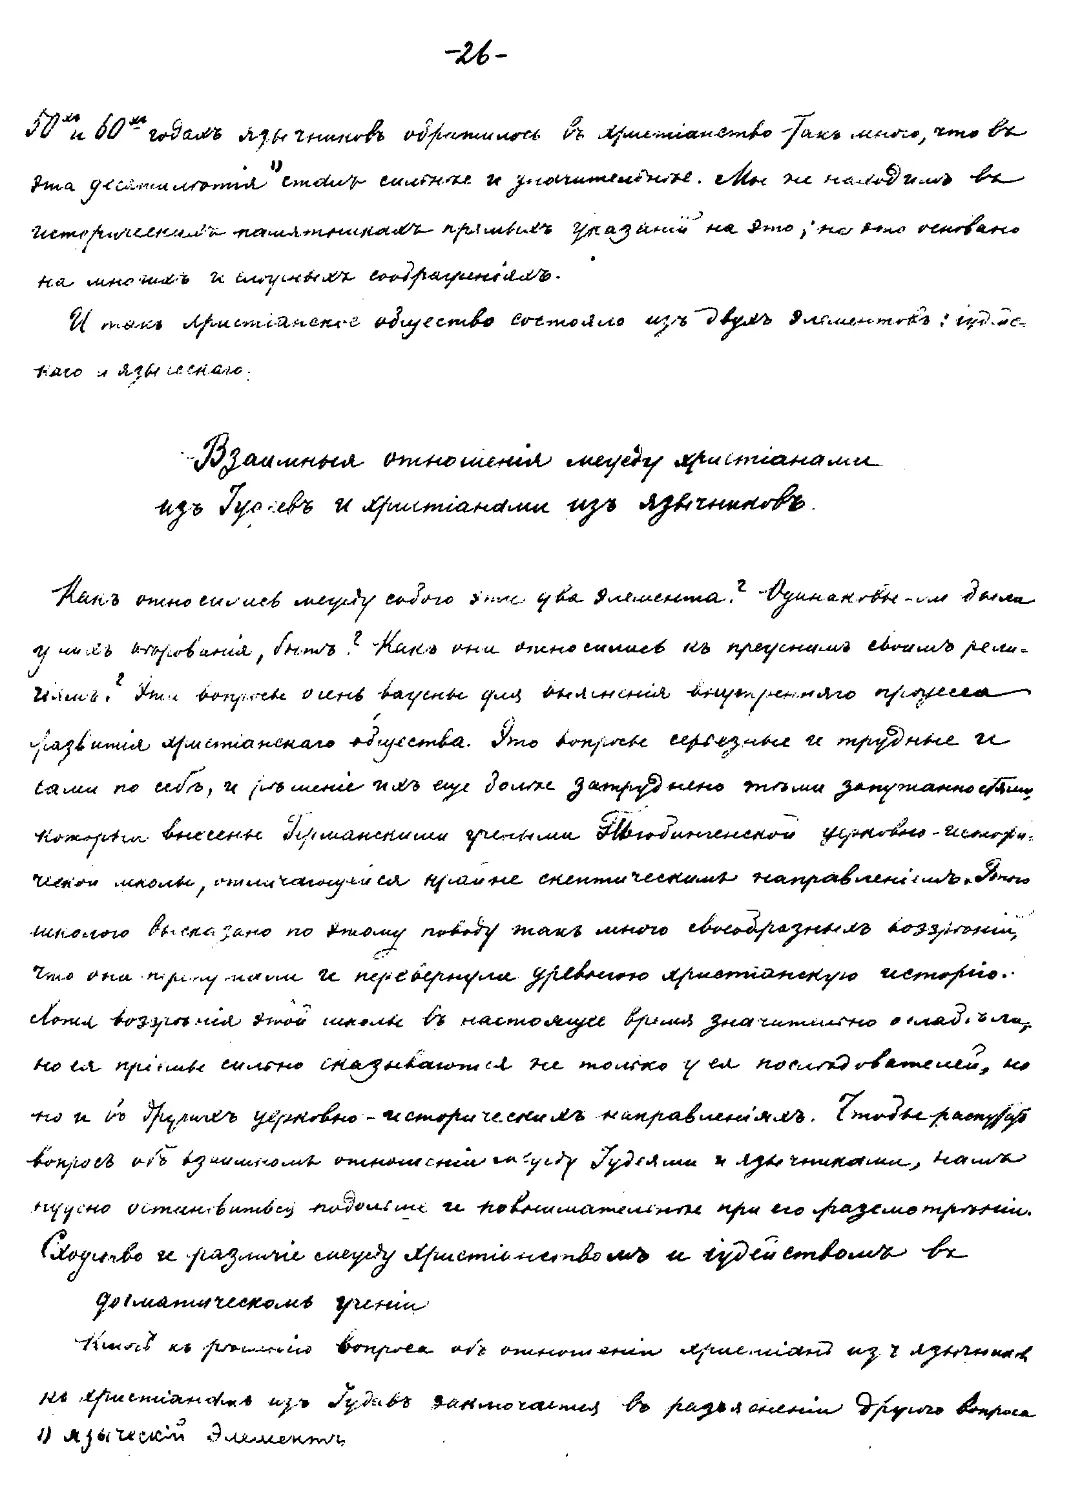 -26-
50хъ и 60хъ годахъ язычниковъ обратилось въ христіанство такъ много, что въ
эта десятилѣтія 1) сталъ сильнѣе и значительнѣе. Мы не находимъ въ
историческихъ памятникахъ прямыхъ указаній на это; но это основано
на многихъ и сложныхъ соображеніяхъ.
И такъ христіанское общество состояло изъ двухъ элементовъ: іудейс-
каго и языческаго.
Взаимныя отношенія между христіанами
изъ Іудеевъ и христіанами изъ язычниковъ.
Какъ относились между собою эти два элемента? Одинаковы-ли были
у нихъ вѣрованія, бытъ? Какъ они относились къ прежнимъ своимъ рели-
гіямъ? Эти вопросы очень важны для выясненія внутренняго процесса
развитія христіанскаго общества. Это вопросы серьезные и трудные и
сами по себѣ, и рѣшеніе ихъ еще болѣе затруднено тѣми запутанностями,
которыя внесены Германскими учеными Тюбингенской церковно-истори-
ческой школы, отличающейся крайне скептическимъ направленіемъ. Этою
школою высказано по этому поводу такъ много своеобразныхъ воззрѣній,
что они перепутали и перевернули древнюю христіанскую исторію.
Хотя воззрѣнія этой школы въ настоящее время значительно ослабѣли,
но ея пріемы сильно сказываются не только у ея послѣдователей, но
но и въ другихъ церковно-историческихъ направленіяхъ. Чтобы распутать
вопросъ объ взаимномъ отношеніи между Іудеями и язычниками, намъ
нужно остановиться подольше и повнимательнѣе при его разсмотрѣніи.
Сходство и различіе между христіанствомъ и іудействомъ въ
догматическомъ ученіи
Ключъ къ рѣшенію вопроса объ отношеніи христіанъ изъ язычниковъ
къ христіанамъ изъ Іудеевъ заключается въ разъясненіи другого вопроса
1) языческій элементъ